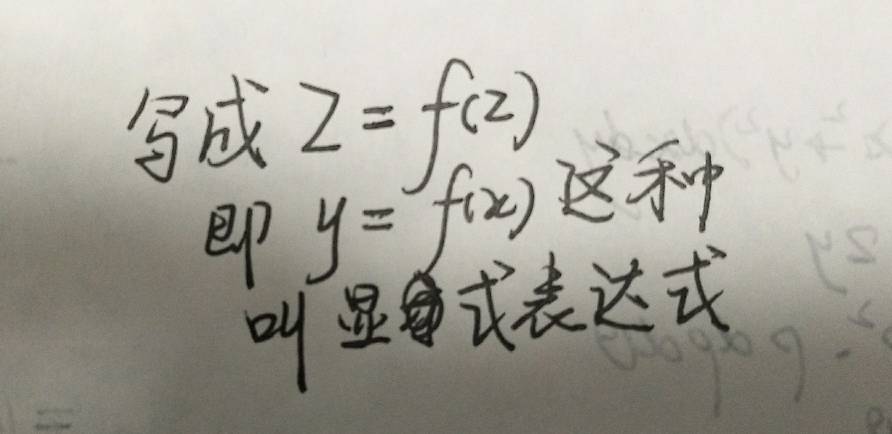 写成 Z = f(z)
即 y = f(x) 这种
叫显式表达式